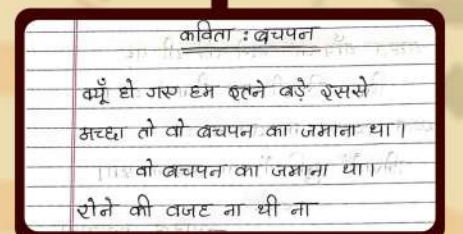 कविता : बचपन
क्यूँ हो गए हम इतने बड़े इससे
अच्छा तो वो बचपन का जमाना था ।
वो बचपन का जमाना था ।
रोने की वजह ना थी ना